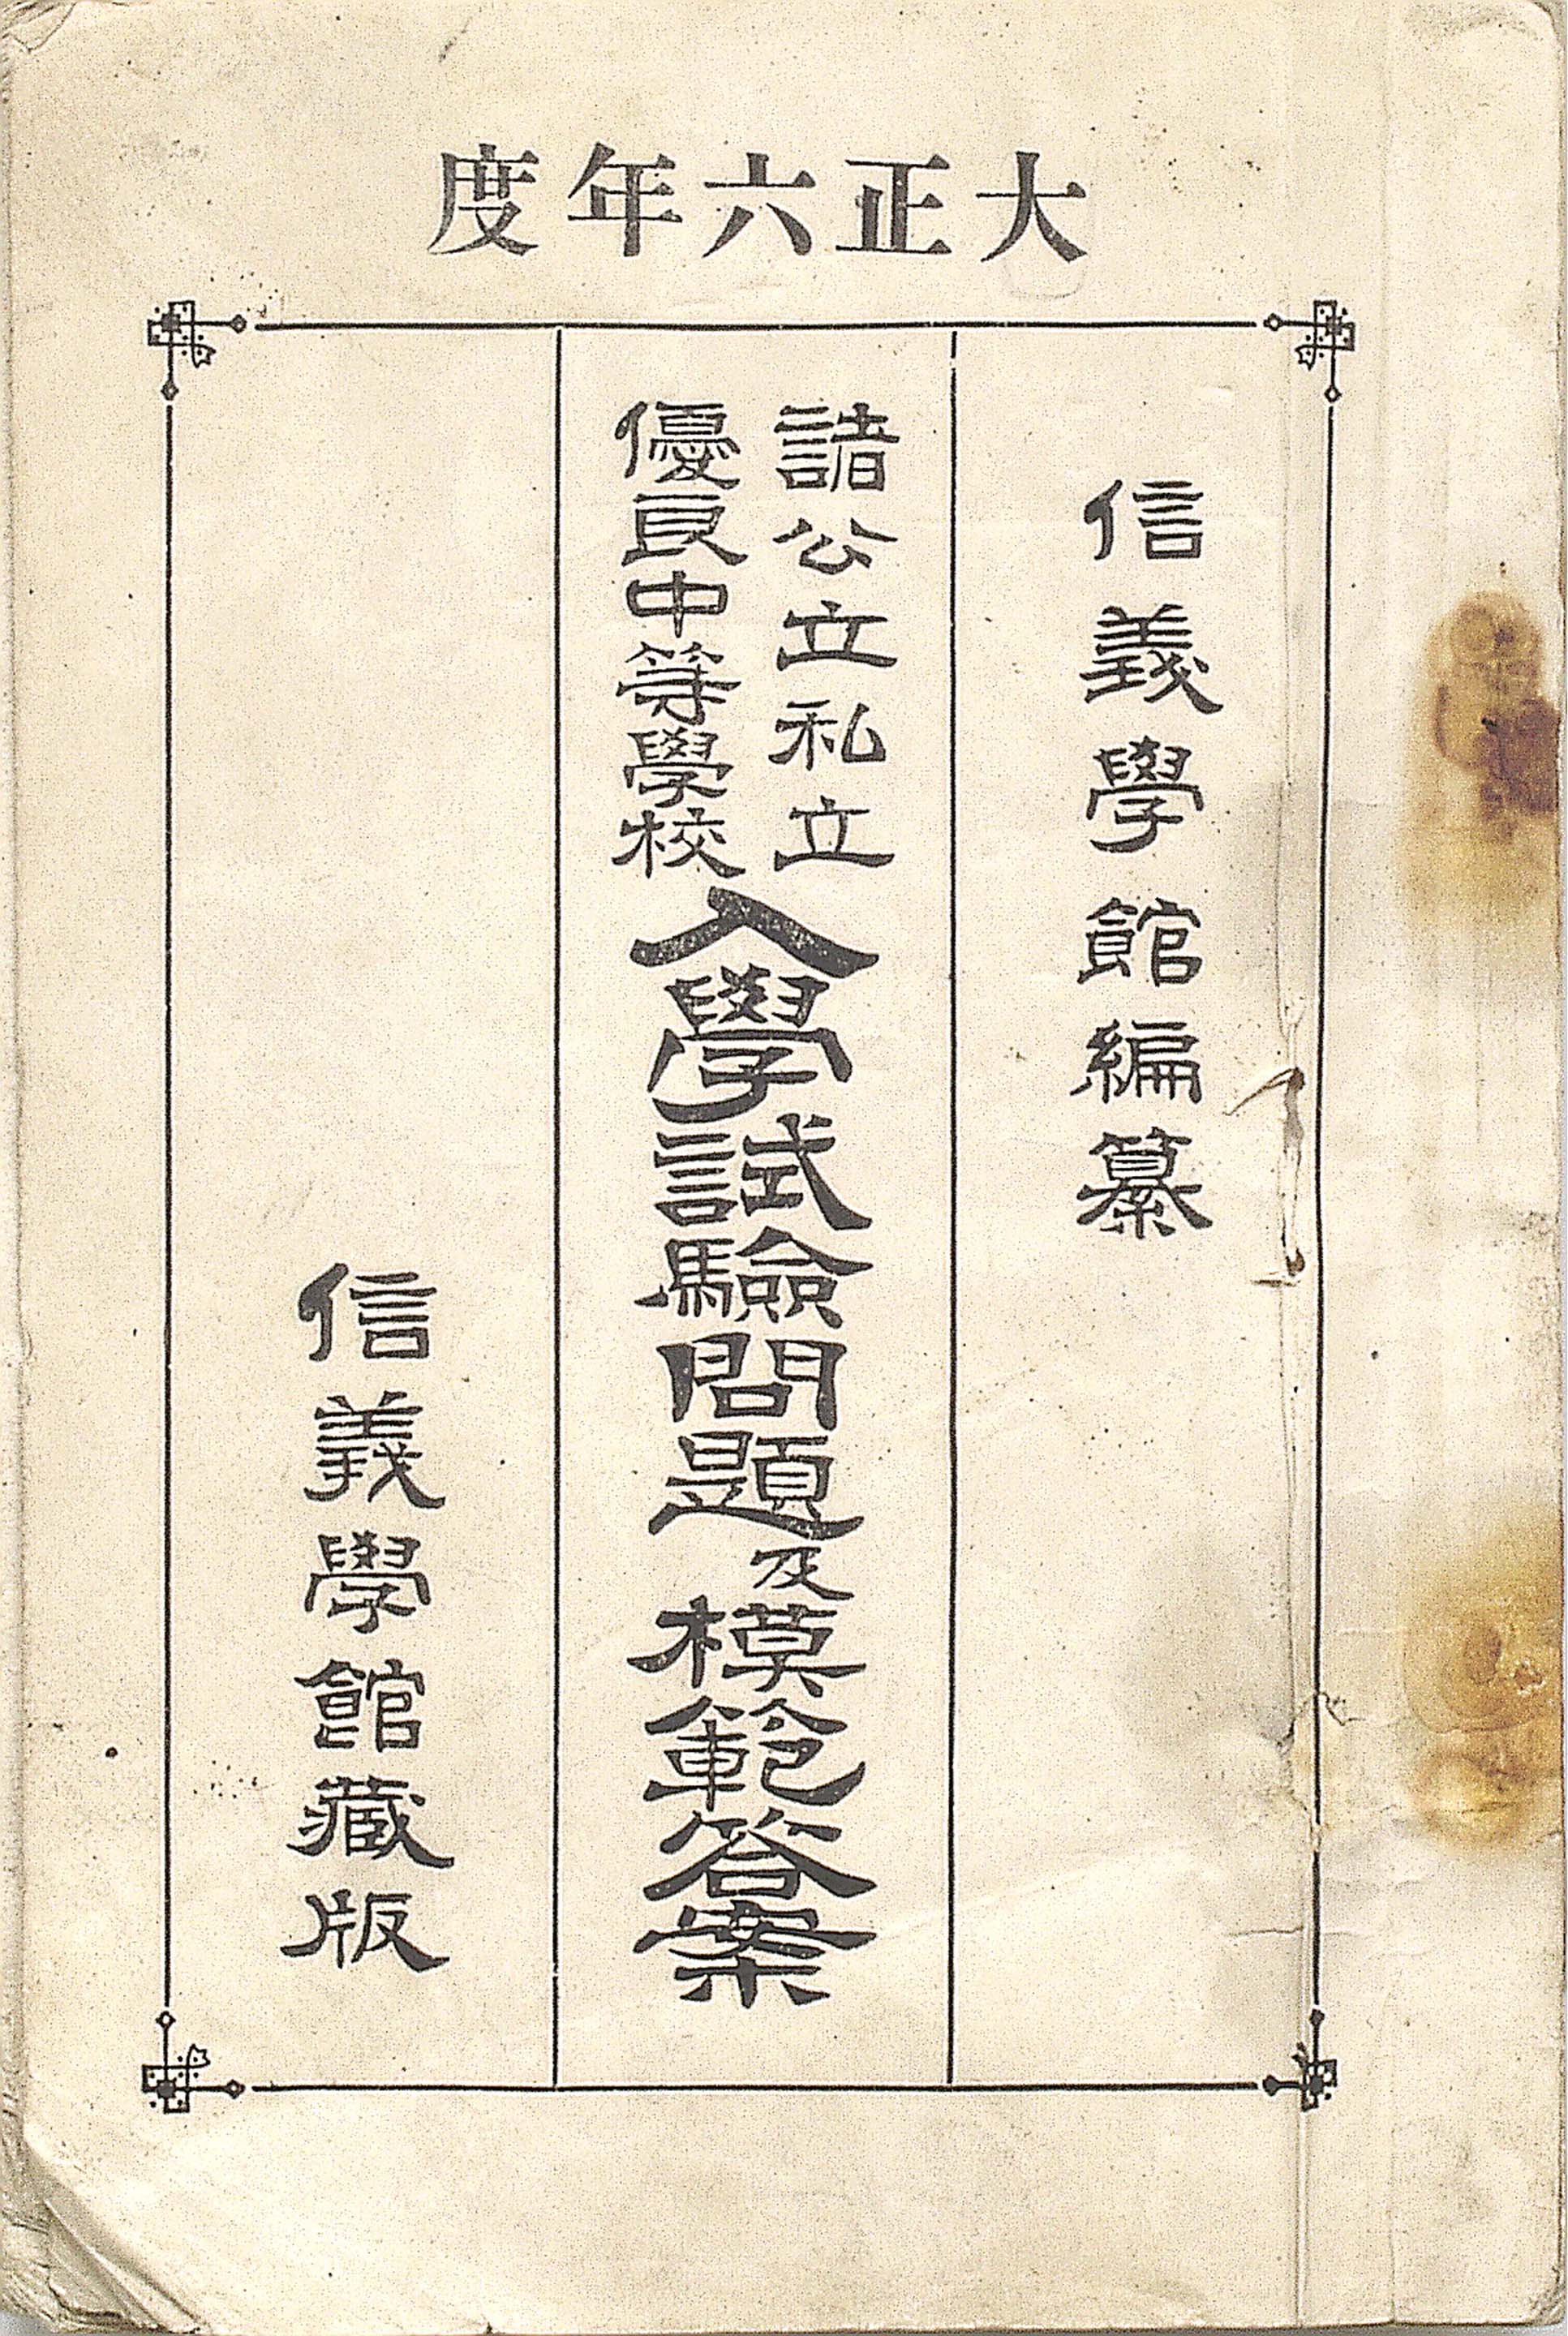 大正六年度
信義學館編纂
諸公立私立
優良中等學校
入學試驗問題及模範答案
信義學館藏版